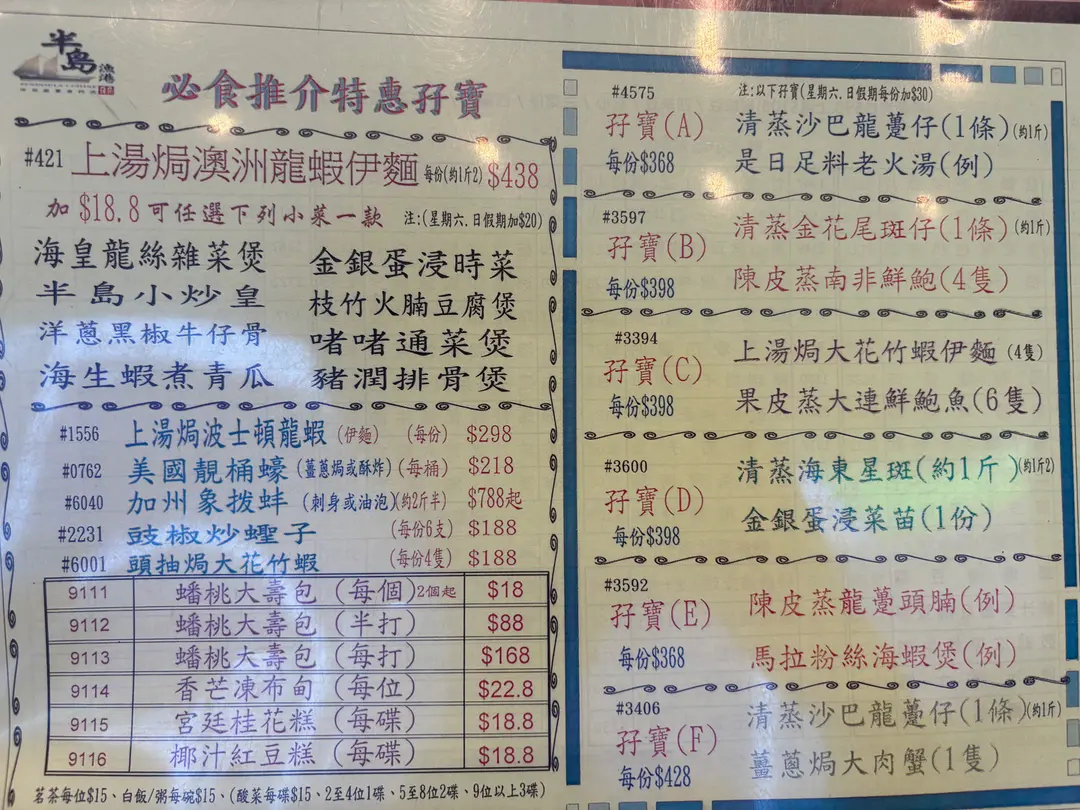 半島
漁港
必食推介特惠孖寶
#421 上湯焗澳洲龍蝦伊麵 每份(約1斤2) $438
加 $18.8 可任選下列小菜一款 注:(星期六.日假期加$20)
海皇龍絲雜菜煲 金銀蛋浸時菜
半島小炒皇 枝竹火腩豆腐煲
洋蔥黑椒牛仔骨 啫啫通菜煲
海生蝦煮青瓜 豬潤排骨煲
#1556 上湯焗波士頓龍蝦 (伊麵) (每份) $298
#0762 美國靚桶蠔 (薑蔥焗或酥炸) (每桶) $218
#6040 加州象拔蚌 (刺身或油泡)(約2斤半) $788起
#2231 豉椒炒蟶子 (每份6支) $188
#6001 頭抽焗大花竹蝦 (每份4隻) $188
9111 蟠桃大壽包 (每個) 2個起 $18
9112 蟠桃大壽包 (半打) $88
9113 蟠桃大壽包 (每打) $168
9114 香芒凍布甸 (每位) $22.8
9115 宮廷桂花糕 (每碟) $18.8
9116 椰汁紅豆糕 (每碟) $18.8
茗茶每位$15、白飯/粥每碗$15、(酸菜每碟$15、2至4位1碟、5至8位2碟、9位以上3碟)
#4575 注:以下孖寶(星期六.日假期每份加$30)
孖寶(A) 清蒸沙巴龍躉仔(1條)(約1斤)
每份$368 是日足料老火湯(例)
#3597
孖寶(B) 清蒸金花尾斑仔(1條)(約1斤)
每份$398 陳皮蒸南非鮮鮑(4隻)
#3394
孖寶(C) 上湯焗大花竹蝦伊麵 (4隻)
每份$398 果皮蒸大連鮮鮑魚(6隻)
#3600
孖寶(D) 清蒸海東星斑(約1斤)(約1斤2)
每份$398 金銀蛋浸菜苗(1份)
#3592
孖寶(E) 陳皮蒸龍躉頭腩(例)
每份$368 馬拉粉絲海蝦煲(例)
#3406
孖寶(F) 清蒸沙巴龍躉仔(1條)(約1斤)
每份$428 薑蔥焗大肉蟹(1隻)